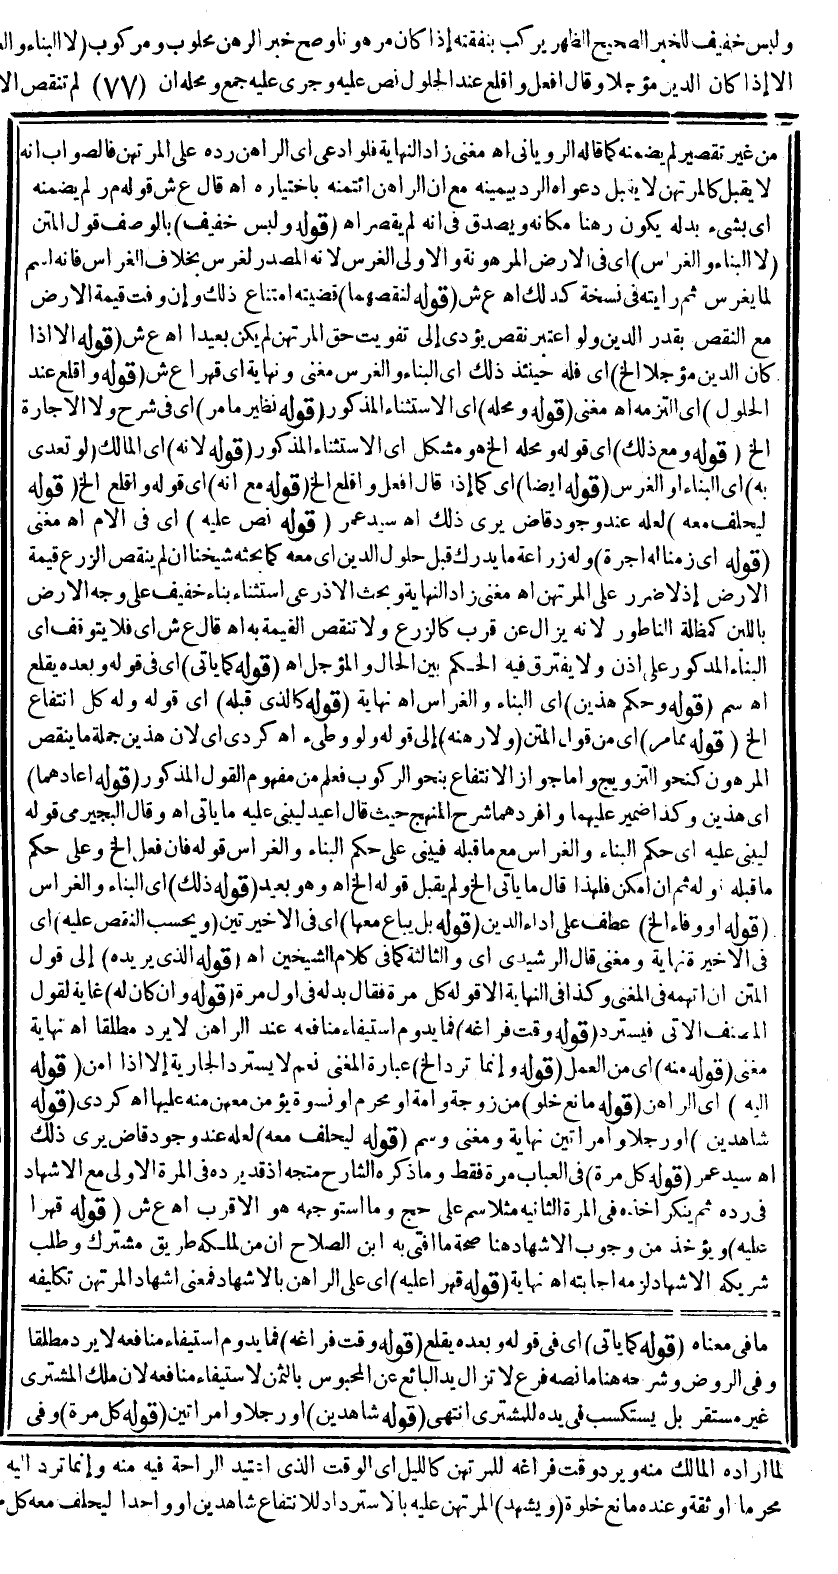 ولبس خفيف للخبر الصحيح الظهر يركب بنفقته إذا كان مرهونا وصح خبر الرهن محلوب ومركوب (لا البناء و
الا إذا كان الدين مؤجلا وقال افعل واقلع عند الحلول نص عليه وجرى عليه جمع ومحله ان (٧٧) لم تنقص
من غير تقصير لم يضمنه كما قاله الروياني اه مغني زاد النهاية فلو ادعى اي الراهن رده على المرتهن فالصواب انه
لا يقبل كالمرتهن لا يقبل دعواه الرد بيمينه مع ان الراهن ائتمنه باختياره اه قال ع ش قوله مر لم يضمنه
اي بشيء بدله يكون رهنا مكانه ويصدق في انه لم يقصر اه (قوله ولبس خفيف) بالوصف قول المتن
(لا البناء والغراس) اي في الارض المرهونة والاولى الغرس لانه المصدر لغرس بخلاف الغراس فانه اسم
لما يغرس ثم رايته في نسخة كذلك اه ع ش (قوله لنقصهما) قضيته امتناع ذلك وإن وفت قيمة الارض
مع النقص بقدر الدين ولو اعتبر نقص يؤدي إلى تفويت حق المرتهن لم يكن بعيدا اه ع ش (قوله الا اذا
كان الدين مؤجلا الخ) اي فله حينئذ ذلك اي البناء والغرس مغني ونهاية اي قهرا ع ش (قوله واقلع عند
الحلول) اي التزمه اه مغني (قوله ومحله) اي الاستثناء المذكور (قوله نظير ما مر) اي في شرح ولا الاجارة
الخ (قوله ومع ذلك) اي قوله ومحله الخ هو مشكل اي الاستثناء المذكور (قوله لانه) اي المالك (لو تعدى
به) اي البناء او الغرس (قوله ايضا) اي كما إذا قال افعل واقلع الخ (قوله مع انه) اي قوله واقلع الخ (قوله
ليحلف معه) لعله عند وجود قاض يرى ذلك اه سيد عمر (قوله نص عليه) اي في الام اه مغني
(قوله اي زمنا له اجرة) وله زراعة ما يدرك قبل حلول الدين اي معه كما بحثه شيخنا ان لم ينقص الزرع قيمة
الارض إذ لا ضرر على المرتهن اه مغني زاد النهاية وبحث الاذرعي استثناء بناء خفيف على وجه الارض
باللبن كمظلة الناطور لانه يزال عن قرب كالزرع ولا تنقص القيمة به اه قال ع ش اي فلا يتوقف اي
البناء المذكور على اذن ولا يفترق فيه الحكم بين الحال والمؤجل اه (قوله كما ياتي) اي في قوله وبعده يقلع
اه سم (قوله وحكم هذين) اي البناء والغراس اه نهاية (قوله كالذي قبله) اي قوله وله كل انتفاع
الخ (قوله مما مر) اي من قول المتن (ولا رهنه) إلى قوله ولو وطىء اه كردي اي لان هذين جملة ما ينقص
المرهون كنحو التزويج واما جواز الانتفاع بنحو الركوب فعلم من مفهوم القول المذكور (قوله اعادهما)
اي هذين وكذا ضمير عليهما وافردهما شرح المنهج حيث قال اعيد ليبني عليه ما ياتي اه وقال البجيرمي قوله
ليبني عليه اي حكم البناء والغراس مع ما قبله فيبني على حكم البناء والغراس قوله فان فعل الخ وعلى حكم
ما قبله قوله ثم ان امكن فلهذا قال ما ياتي الخ ولم يقبل قوله الخ اه وهو بعيد (قوله ذلك) اي البناء والغراس
(قوله او وفاء الخ) عطف على اداء الدين (قوله بل يباع معها) اي في الاخيرتين (ويحسب النقص عليه) اي
في الاخيرة نهاية ومغني قال الرشيدي اي والثالثة كما في كلام الشيخين اه (قوله الذي يريده) إلى قول
المتن ان اتهمه في المغني وكذا في النهاية الا قوله كل مرة فقال بدله في اول مرة (قوله وان كان له) غاية لقول
المصنف الاتي فيسترد (قوله وقت فراغه) فما يدوم استيفاء منافعه عند الراهن لا يرد مطلقا اه نهاية
مغني (قوله منه) اي من العمل (قوله وإنما ترد الخ) عبارة المغني نعم لا يسترد الجارية إلا اذا امن (قوله
اليه) اي الراهن (قوله مانع خلو) من زوجة وامة او محرم او نسوة يؤمن معهن منه عليها اه كردي (قوله
شاهدين) او رجلا وامراتين نهاية ومغني وسم (قوله ليحلف معه) لعله عند وجود قاض يرى ذلك
اه سيد عمر (قوله كل مرة) في العباب مرة فقط وما ذكره الشارح متجه اذ قد يرده في المرة الاولى مع الاشهاد
في رده ثم ينكر اخذه في المرة الثانيه مثلا سم على حج وما استوجهه هو الاقرب اه ع ش (قوله قهرا
عليه) ويؤخذ من وجوب الاشهاد هنا صحة ما افتى به ابن الصلاح ان من لملكه طريق مشترك وطلب
شريكه الاشهاد لزمه اجابته اه نهاية (قوله قهرا عليه) اي على الراهن بالاشهاد فمعنى اشهاد المرتهن تكليفه
ما في معناه (قوله كما ياتي) اي في قوله وبعده يقلع (قوله وقت فراغه) فما يدوم استيفاء منافعه لا يرد مطلقا
وفي الروض وشرحه هنا ما نصه فرع لا تزال يد البائع عن المحبوس بالثمن لاستيفاء منافعه لان ملك المشترى
غير مستقر بل يستكسب في يده للمشترى انتهى (قوله شاهدين) او رجلا وامراتين (قوله كل مرة) وفي
لما اراده المالك منه ويرد وقت فراغه للمرتهن كالليل اي الوقت الذي اعتيد الراحة فيه منه وإنما ترد اليه
محرما او ثقة وعنده مانع خلوة (ويشهد) المرتهن عليه بالاسترداد للانتفاع شاهدين او واحدا ليحلف معه كل